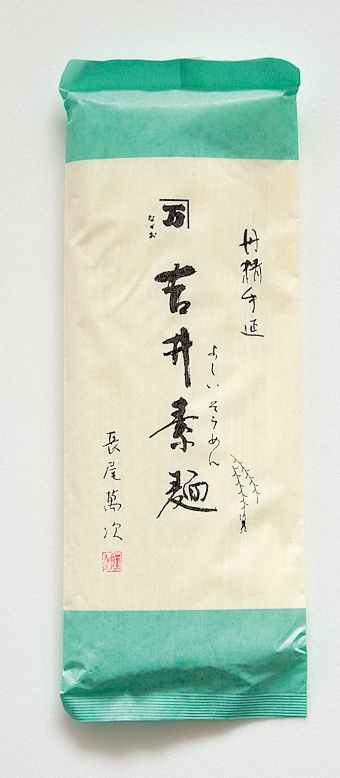 丹精手延
よしいそうめん
吉井素麺
万
ながお
長尾萬次